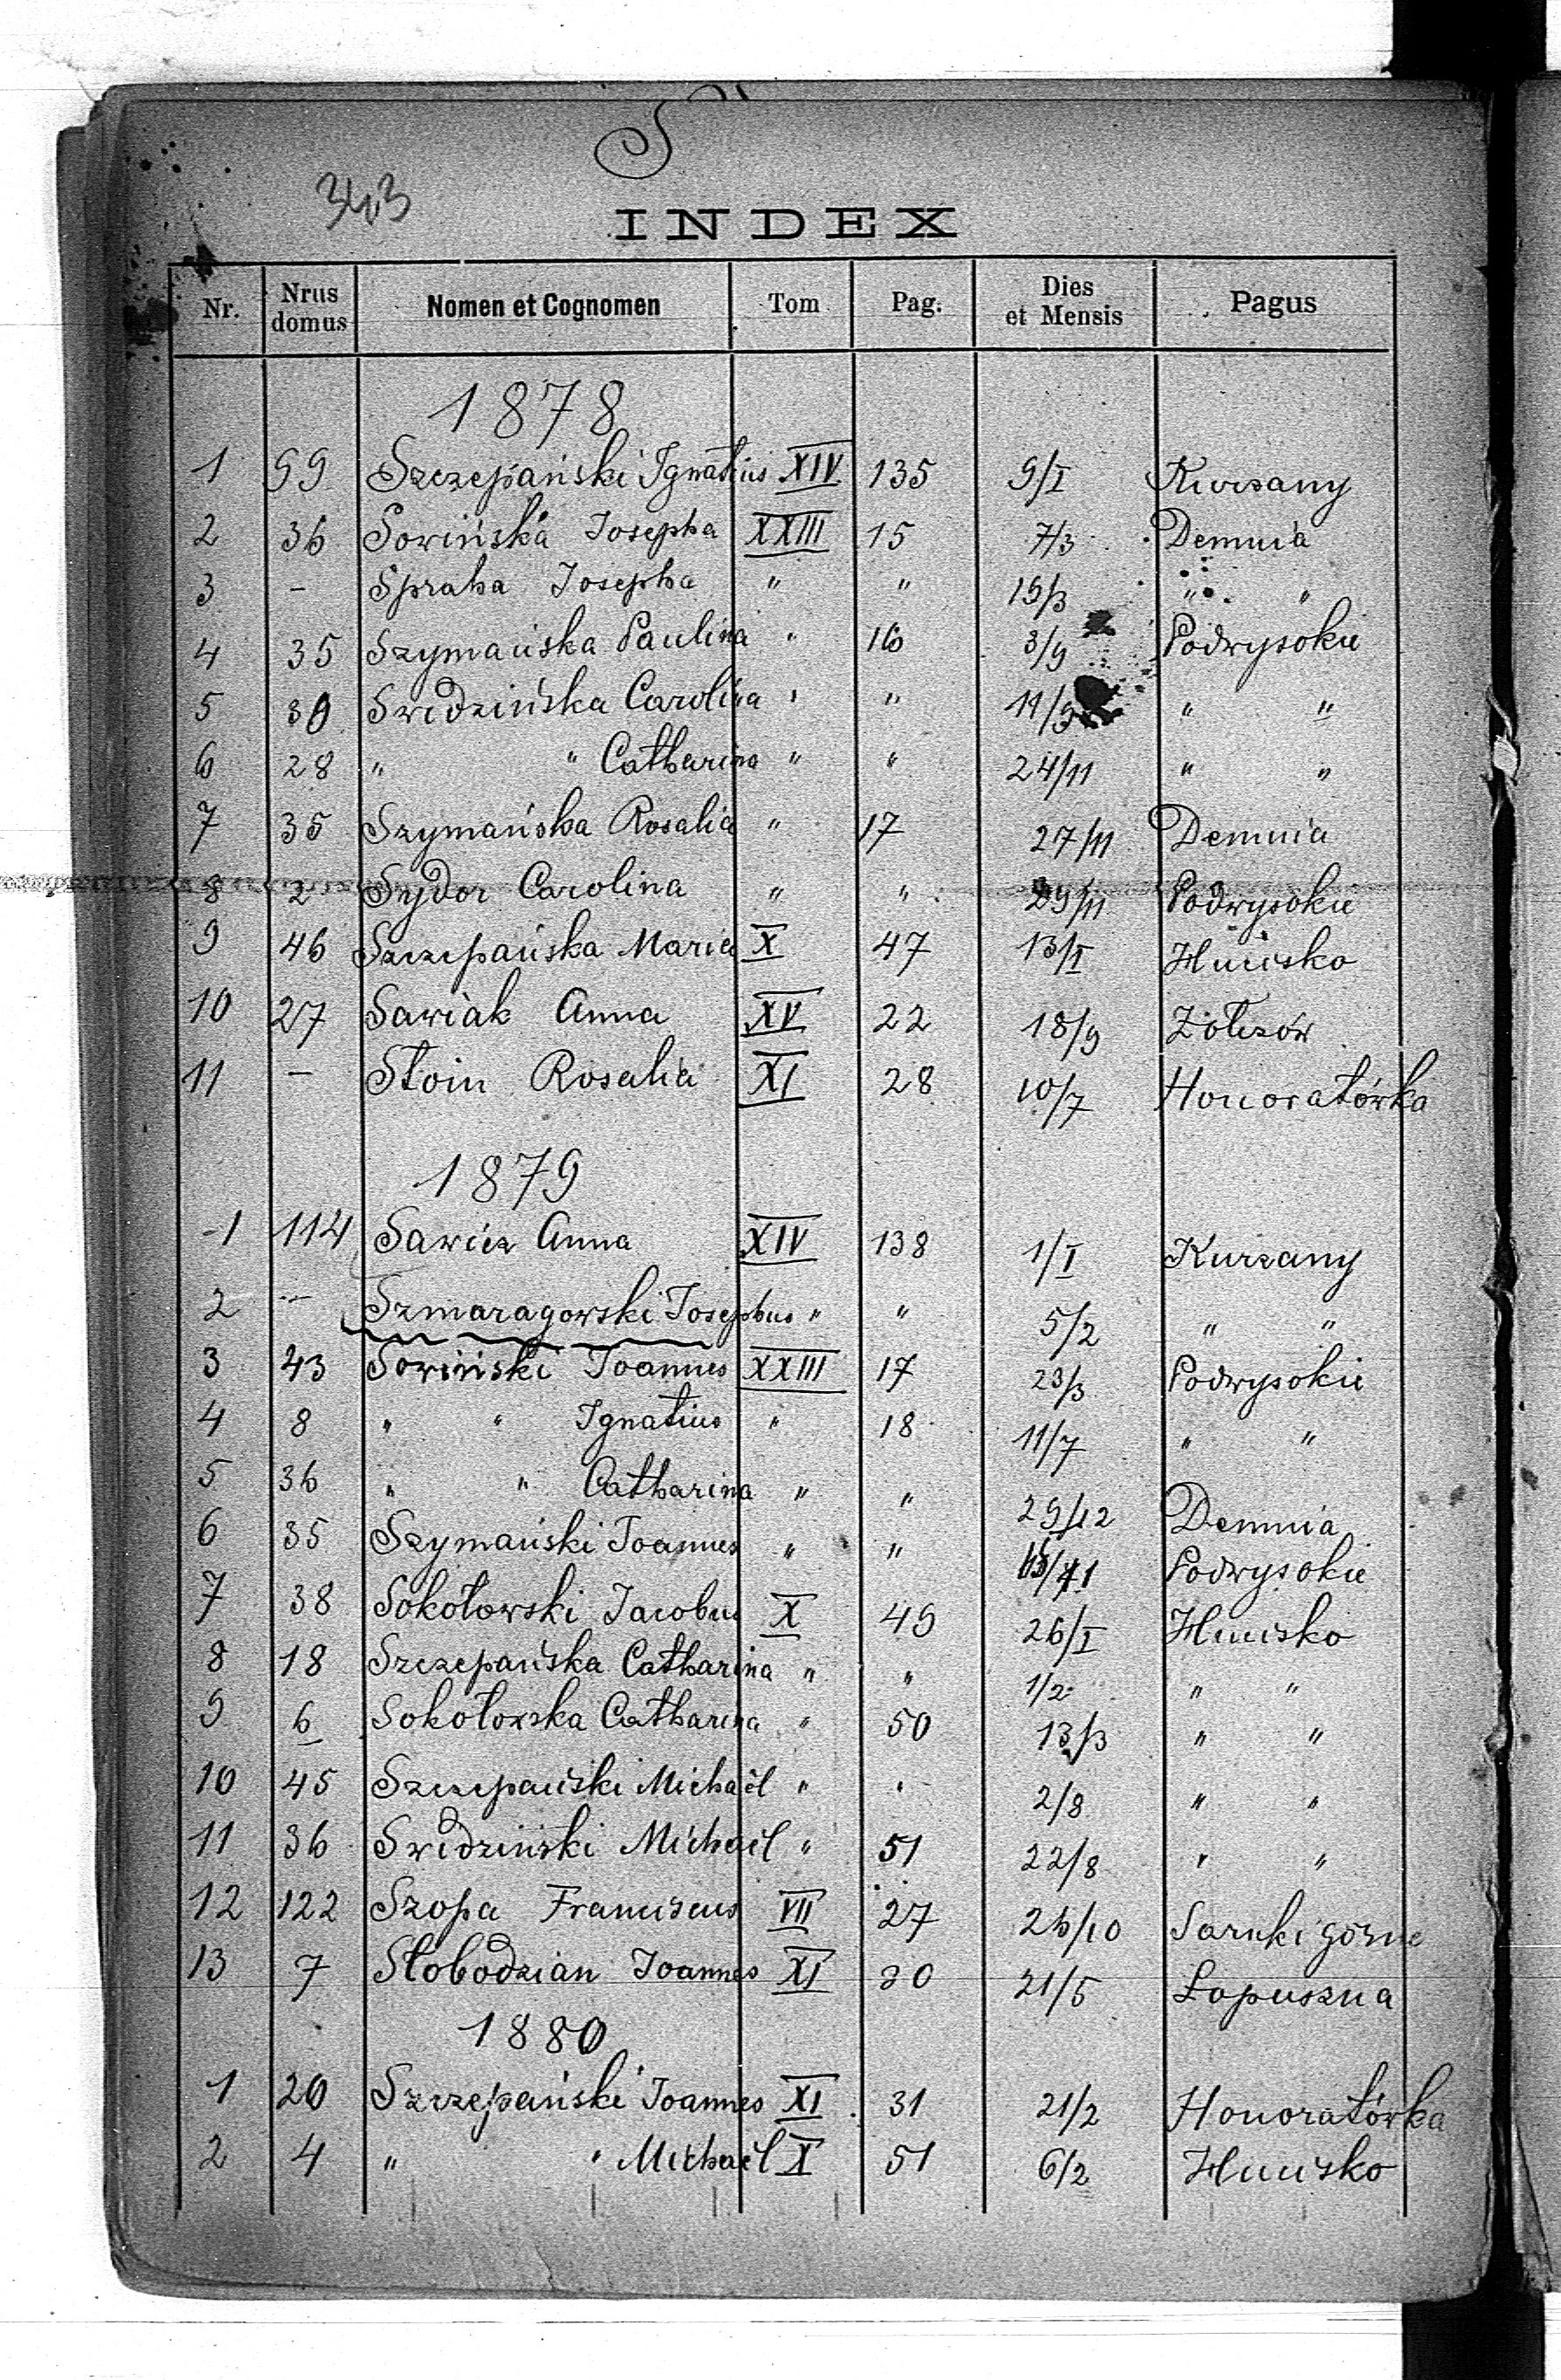 S
343
INDEX
Nr. Nrus domus Nomen et Cognomen Tom Pag. Dies et Mensis Pagus
1878
1 99 Szczepański Ignatius XIV 135 9/I Kurzany
2 36 Sowińska Josepha XXIII 15 7/3 Demnia
3 – Spraha Josepha " " 19/3 " "
4 35 Szymańska Paulina " 16 3/9 Podwysokie
5 30 Swidzińska Carolina " " 11/9 " "
6 28 " " Catharina " " 24/11 " "
7 35 Szymańska Rosalia " 17 27/11 Demnia
8 2 Sydor Carolina " " 29/11 Podwysokie
9 46 Szczepańska Maria X 47 13/I Hucisko
10 27 Sawiak Anna XV 22 18/9 Żółczów
11 – Stoin Rosalia XI 28 10/7 Honoratówka
1879
1 114 Sawicz Anna XIV 138 1/I Kurzany
2 – Szmaragowski Josephus " " 5/2 " "
3 43 Sowiński Joannes XXIII 17 23/3 Podwysokie
4 8 " " Ignatius " 18 11/7 " "
5 36 " " Catharina " " 29/12 Demnia
6 35 Szymański Joannes " " Podwysokie
7 38 Sokołowski Jacobus X 49 26/I Hucisko
8 18 Szczepańska Catharina " " 1/2 " "
9 6 Sokołowska Catharina " 50 13/3 " "
10 45 Szczepański Michaël " " 2/8 " "
11 36 Swidziński Michaël " 51 22/8 " "
12 122 Szopa Franciscus VII 27 26/10 Sarnki górne
13 7 Słobodzian Joannes XI 30 21/5 Łopuszna
1880
1 20 Szczepański Joannes XI 31 21/2 Honoratówka
2 4 " " Michaël X 51 6/2 Hucisko